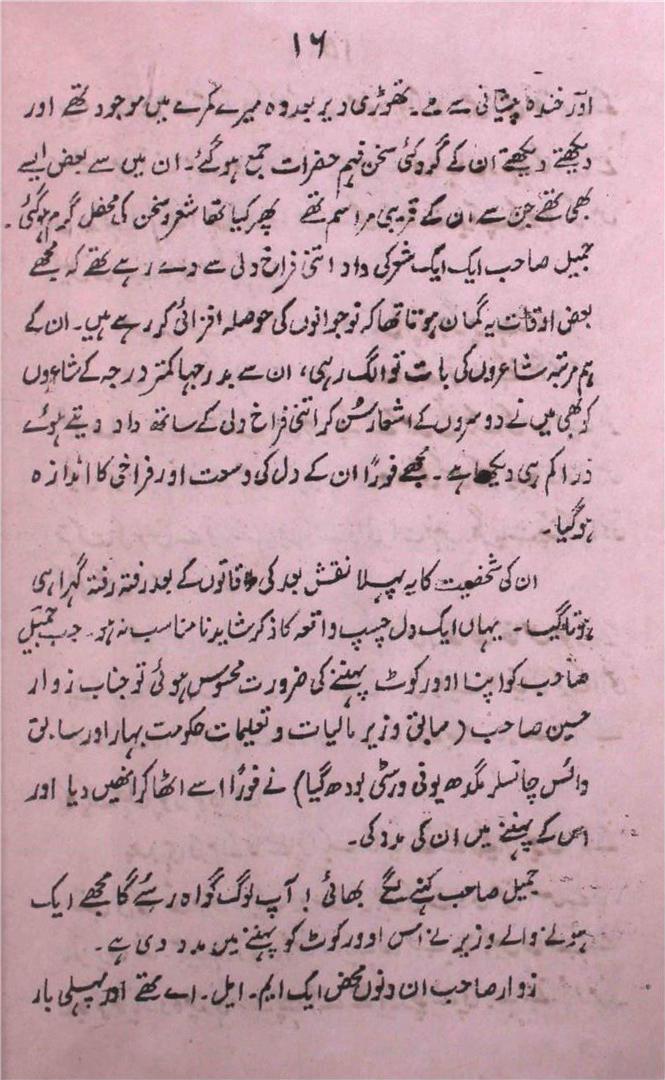 ۱۶
اور خندہ پیشانی سے ملے۔ تھوڑی دیر بعد وہ میرے کمرے میں موجود تھے اور
دیکھتے دیکھتے ان کے گرد کئی سخن فہم حضرات جمع ہو گئے۔ ان میں سے بعض ایسے
بھی تھے جن سے ان کے قریبی مراسم تھے پھر کیا تھا شعر و سخن کی محفل گرم ہو گئی۔
جمیل صاحب ایک ایک شعر کی داد اتنی فراخ دلی سے دے رہے تھے کہ مجھے
بعض اوقات یہ گمان ہوتا تھا کہ نوجوانوں کی حوصلہ افزائی کر رہے ہیں۔ ان کے
ہم مرتبہ شاعروں کی بات تو الگ رہی، ان سے بدرجہا کمتر درجہ کے شاعروں
کو بھی میں نے دوسروں کے اشعار سُن کر اتنی فراخ دلی کے ساتھ داد دیتے ہوئے
ذرا کم ہی دیکھا ہے۔ مجھے فوراً ان کے دل کی وسعت اور فراخی کا اندازہ
ہو گیا۔
ان کی شخصیت کا یہ پہلا نقش بعد کی ملاقاتوں کے بعد رفتہ رفتہ گہرا ہی
ہوتا گیا۔ یہاں ایک دل چسپ واقعہ کا ذکر شاید نامناسب نہ ہو۔ جب جمیل
صاحب کو اپنا اوور کوٹ پہننے کی ضرورت محسوس ہوئی تو جناب زوار
حسین صاحب (سابق وزیر مالیات و تعلیمات حکومت بہار اور سابق
وائس چانسلر مگدھ یونی ورسٹی بودھ گیا) نے فوراً اسے اٹھا کر انھیں دیا اور
اس کے پہننے میں ان کی مدد کی۔
جمیل صاحب کہنے لگے بھائی! آپ لوگ گواہ رہئے گا مجھے ایک
ہونے والے وزیر نے اس اوور کوٹ کو پہننے میں مدد دی ہے۔
زوار صاحب ان دنوں محض ایک ایم۔ ایل۔ اے تھے اور پہلی بار